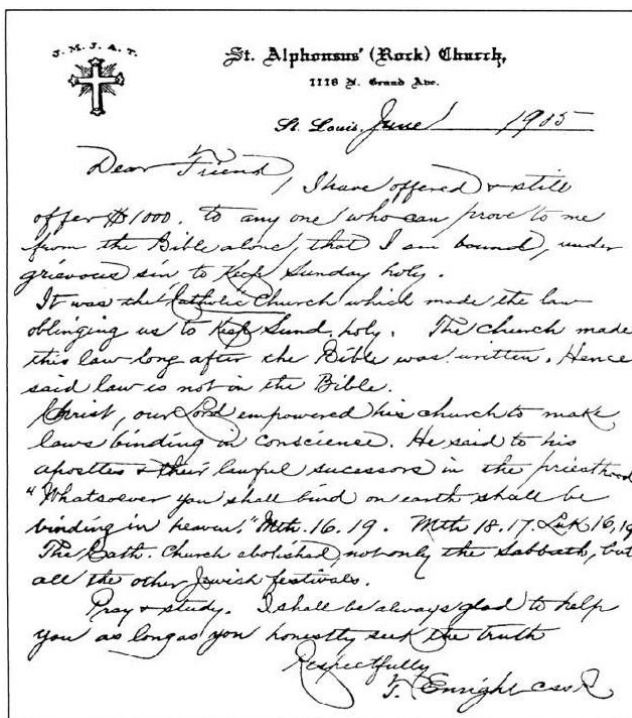 J. M. J. A. T.
St. Alphonsus' (Rock) Church,
1118 N. Grand Ave.
St. Louis, June 1905
Dear Friend,
I have offered & still
offer $1000. to any one who can prove to me
from the Bible alone, that I am bound, under
grievous sin to Keep Sunday holy.
It was the Catholic Church which made the law
oblinging us to Keep Sund. holy. The church made
this law long after the Bible was written. Hence
said law is not in the Bible.
Christ, our Lord empowered his church to make
laws binding in conscience. He said to his
apostles & their lawful sucessors in the priesthood
"Whatsoever you shall bind on earth shall be
binding in heaven." Mth. 16.19. Mth 18.17. Luk 16,19
The Cath. Church abolished not only the Sabbath, but
all the other Jewish festivals.
Pray & study. I shall be always glad to help
you as long as you honestly seek the truth
Respectfully
T. Enright CSSR